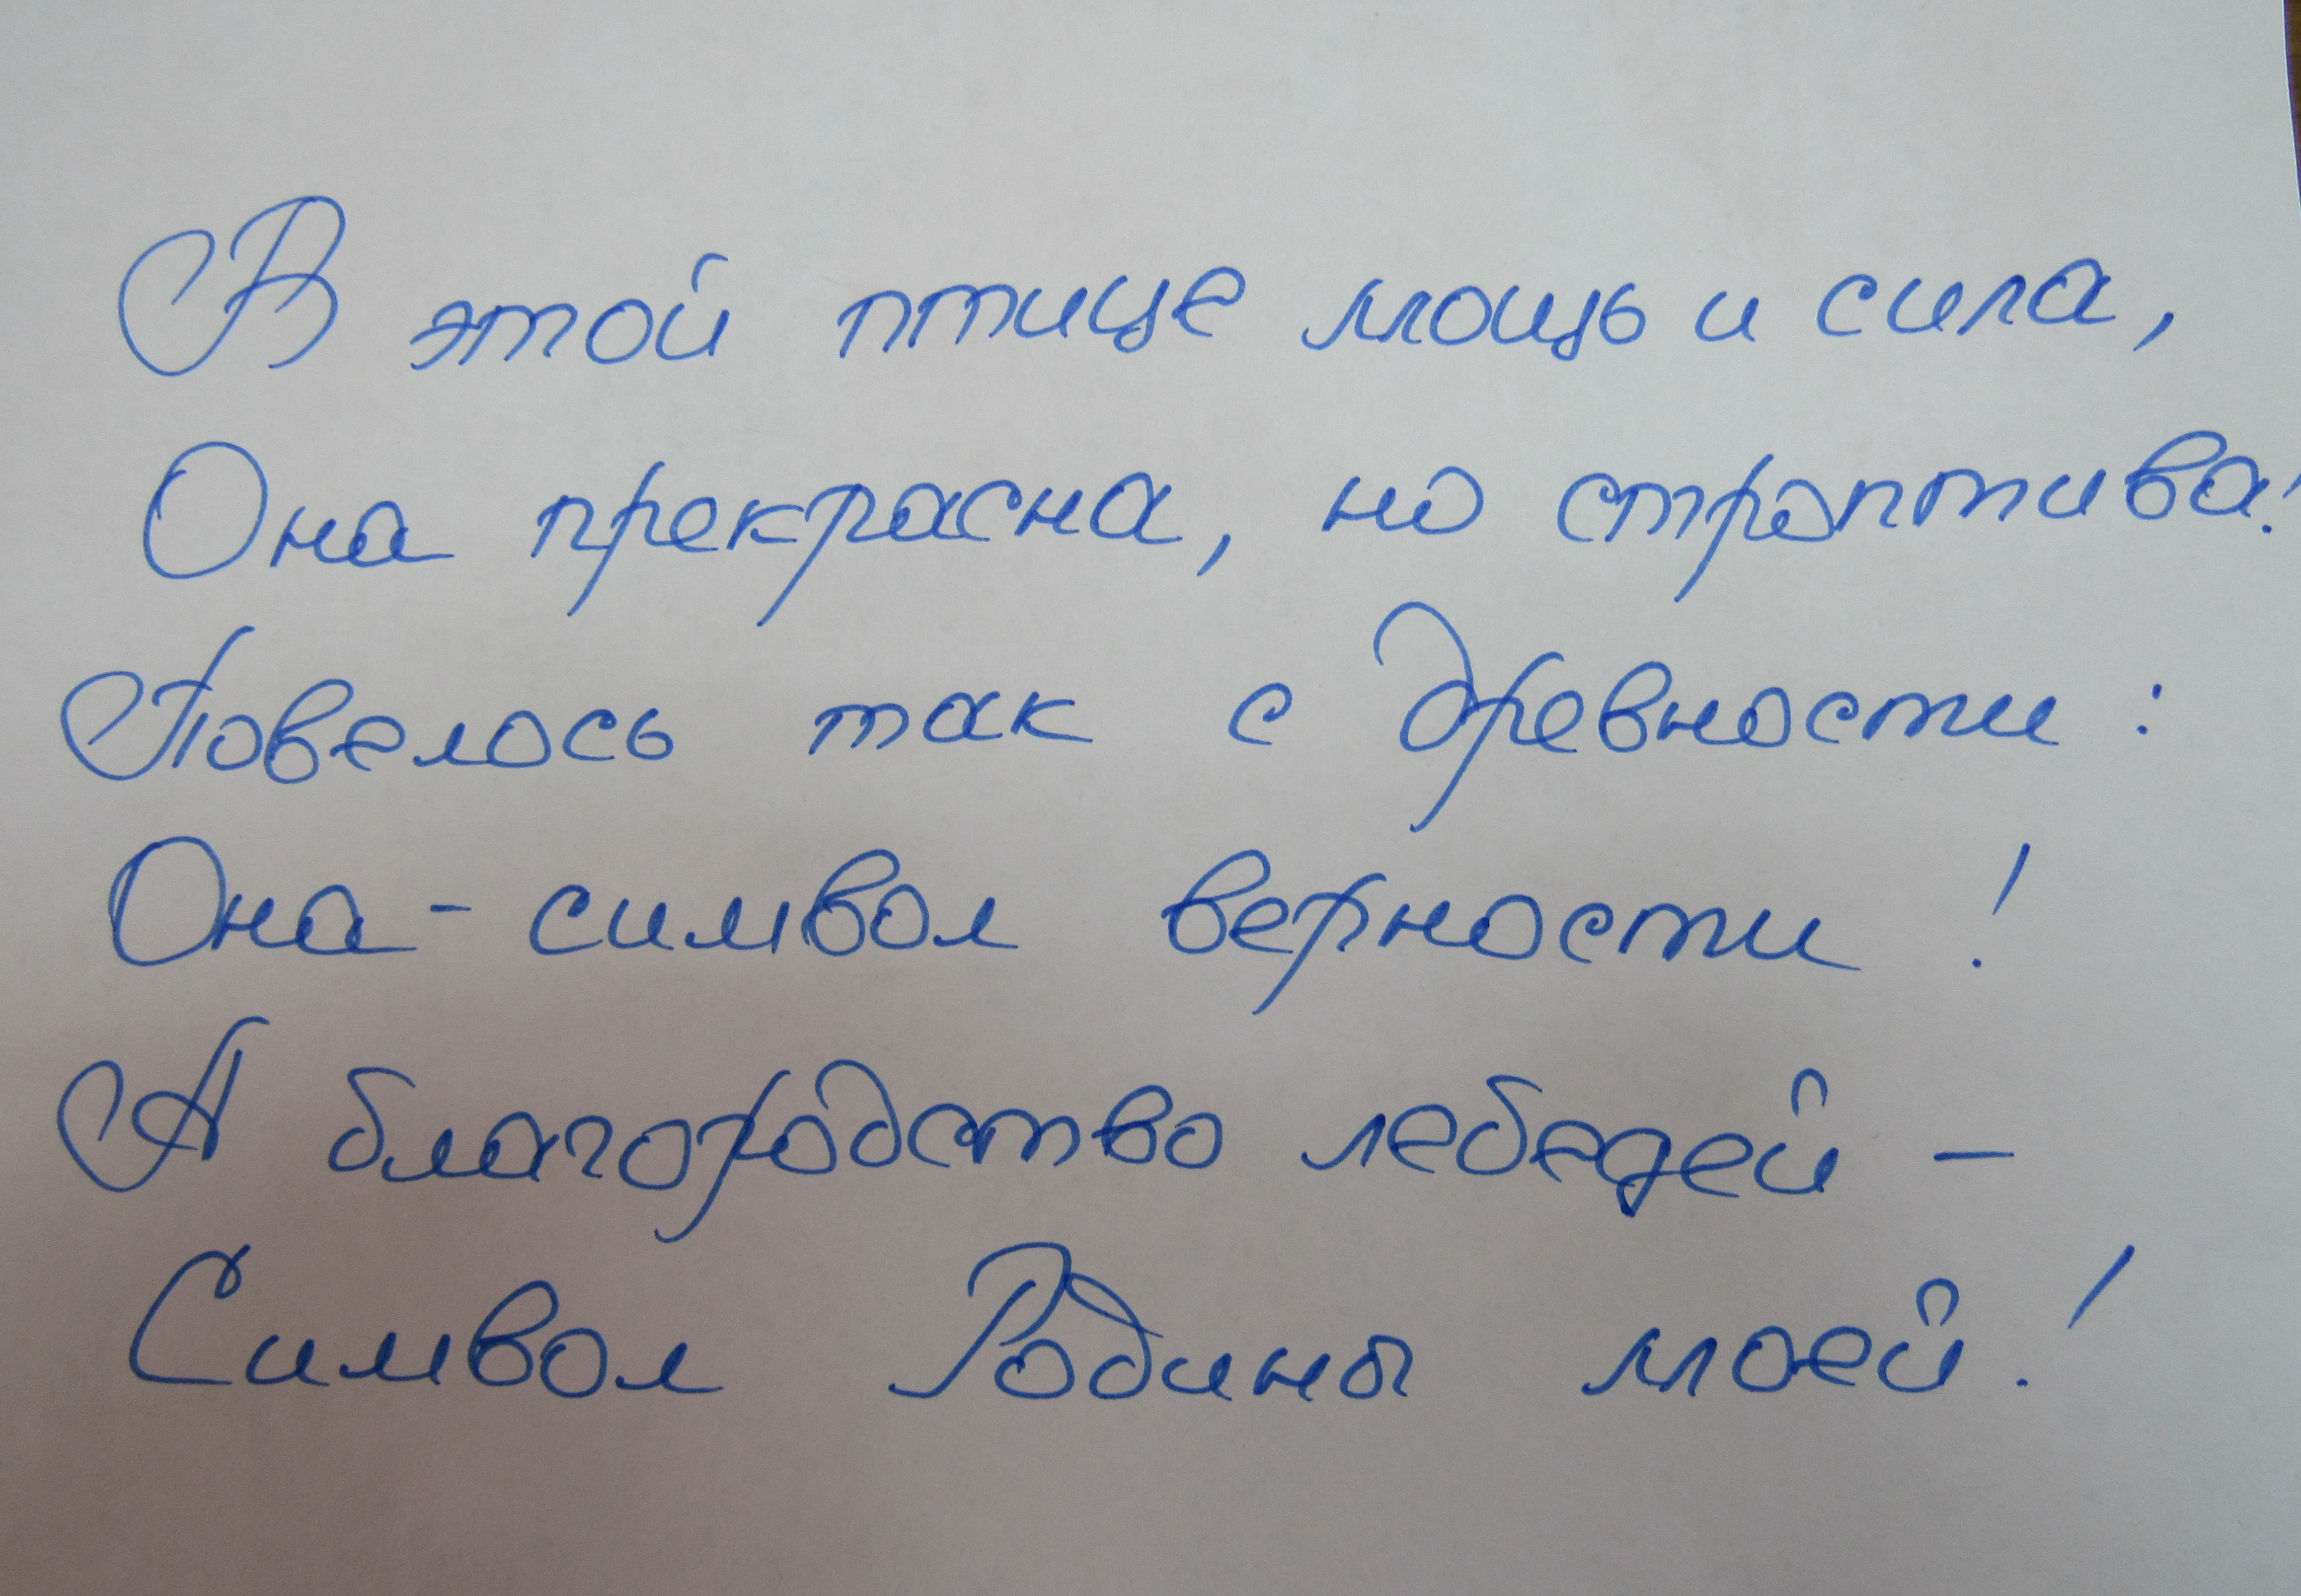 В этой птице мощь и сила,
Она прекрасна, но строптива!
Повелось так с древности:
Она - символ верности!
А благородство лебедей -
Символ Родины моей!